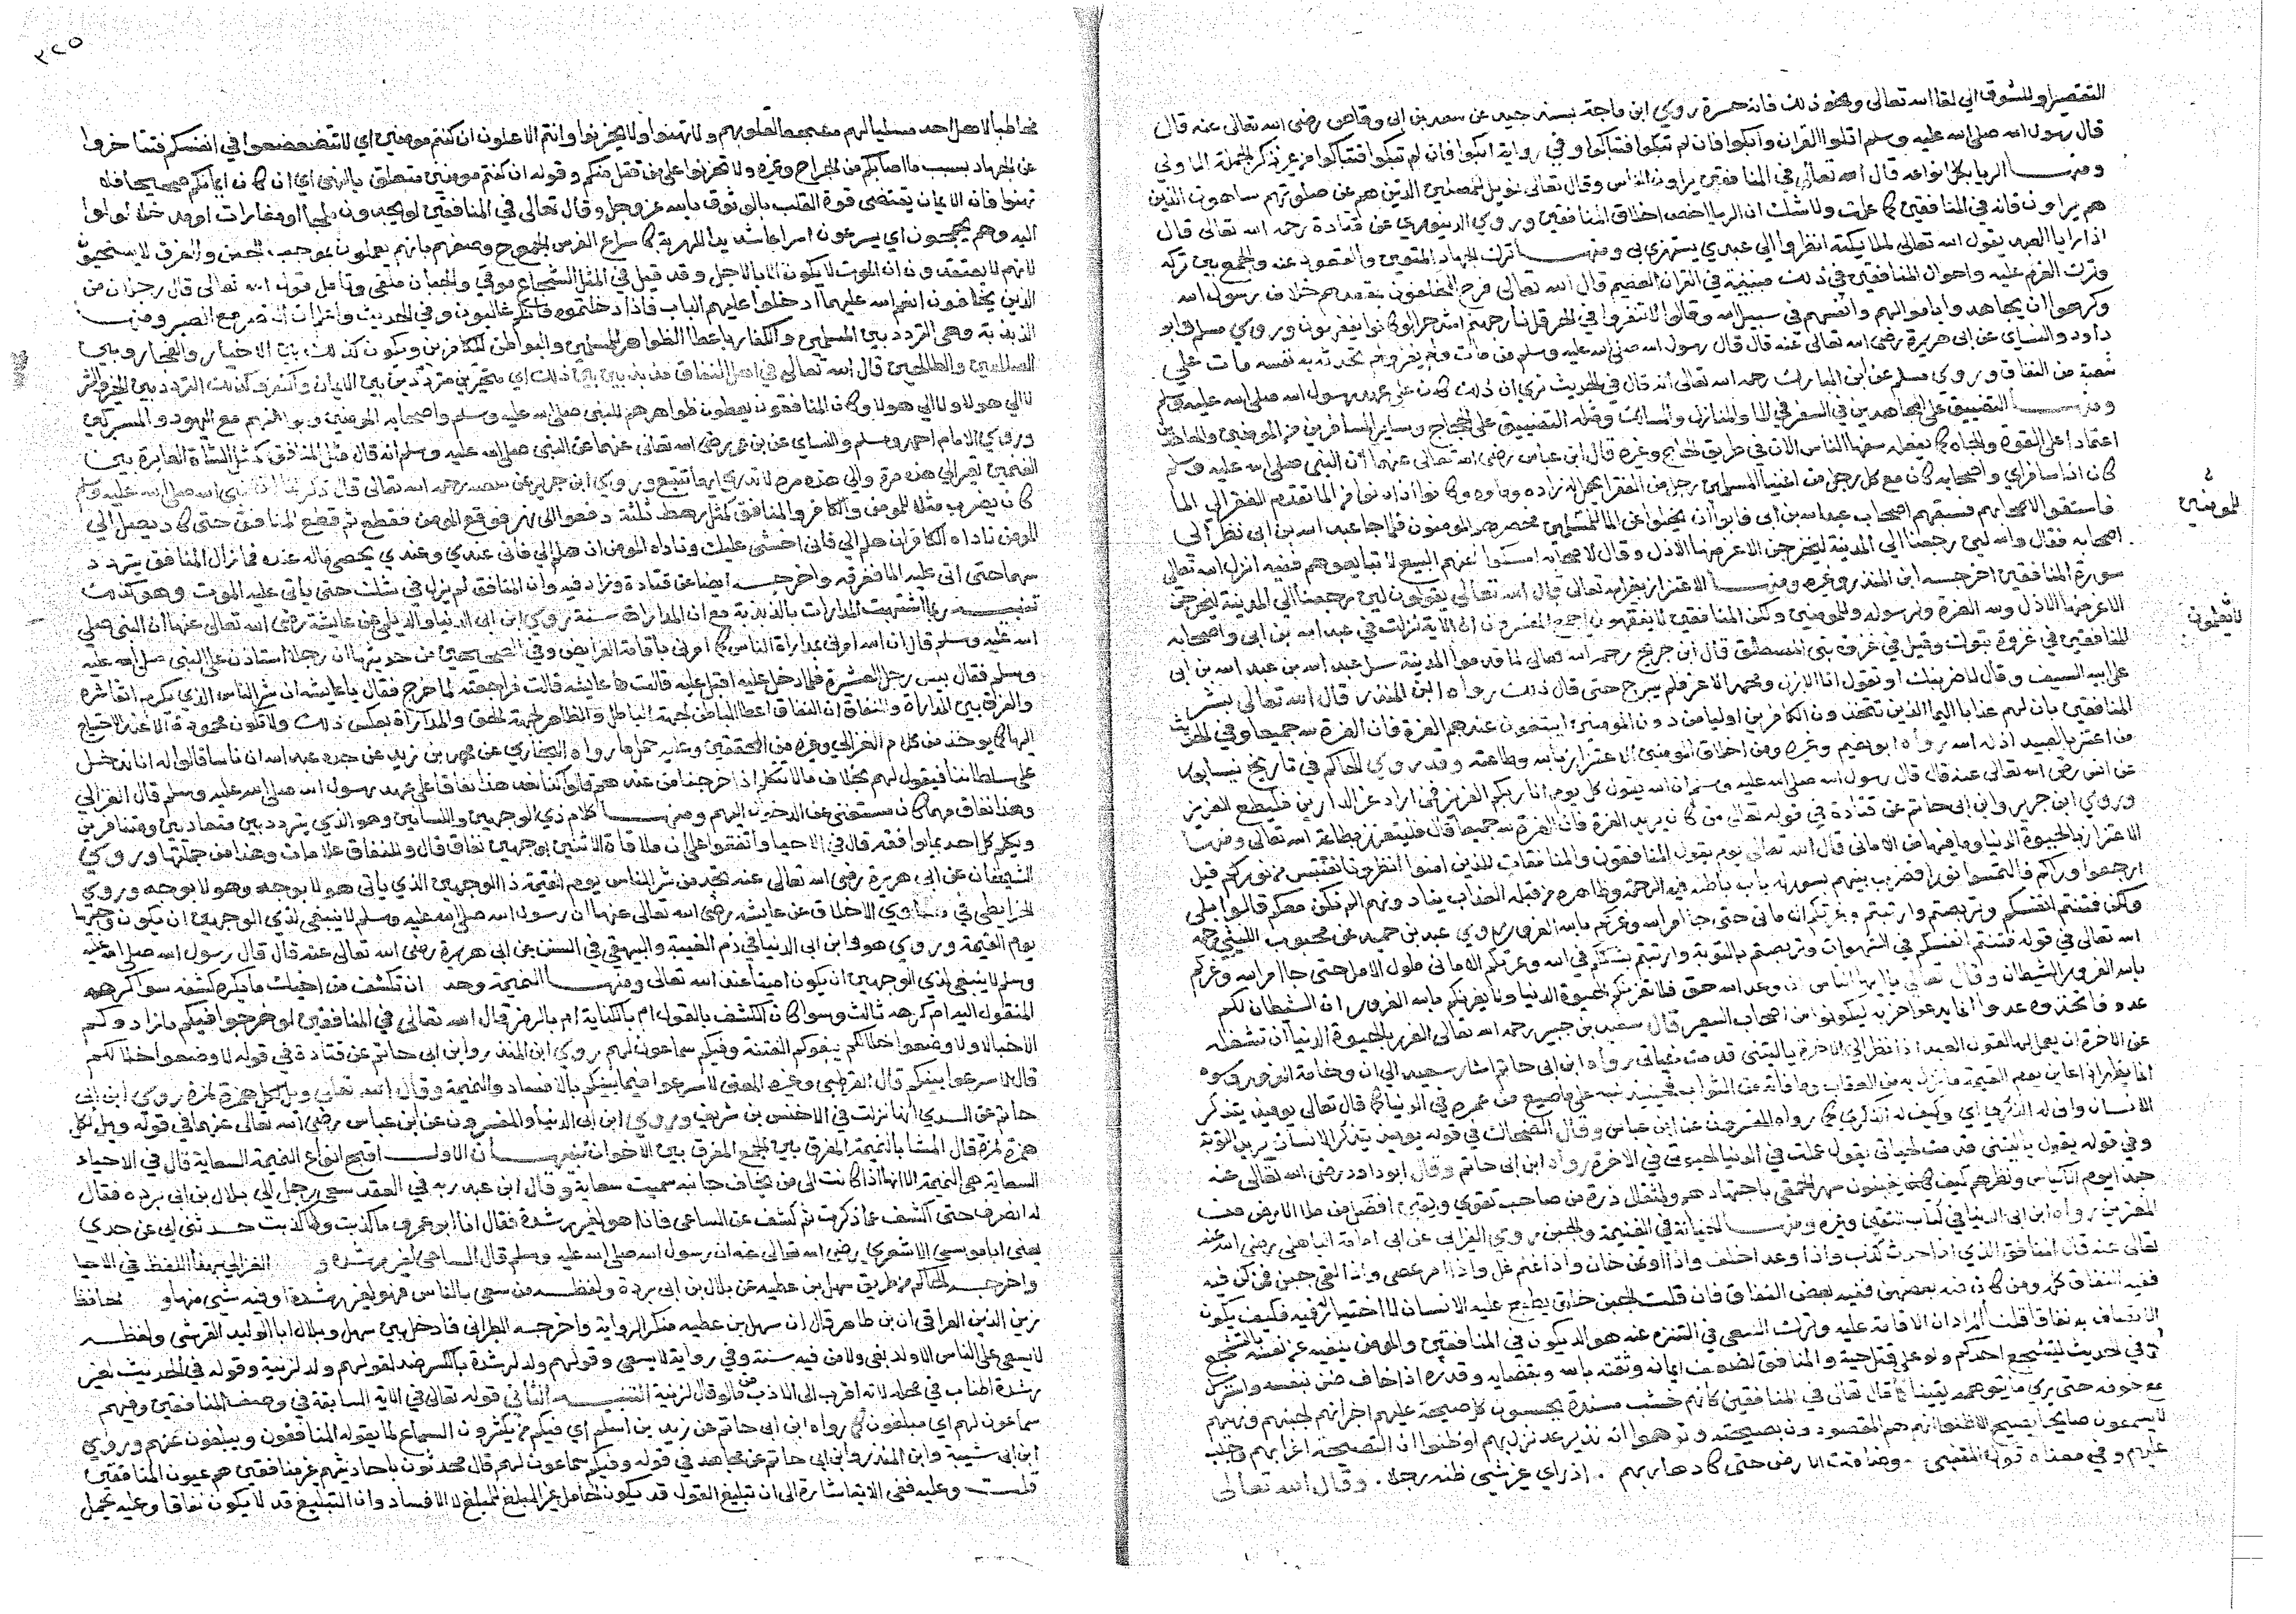 التقصير او للشوق الي لقا الله تعالى ونحو ذلك فانه حسرة روي ابن ماجة بسند جيد عن سعد بن ابي وقاص رضى الله تعالى عنه قال
قال رسول الله صلى الله عليه وسلم اتلوا القران وابكوا فان لم تبكوا فتباكوا وفي رواية ابكوا فان لم تبكوا فتباكوا
ومنها الريا بكل انواعه قال الله تعالى في المنافقين يراون الناس وقال تعالى فويل للمصلين الذين هم عن صلوتهم ساهون الذين
هم يراون فانه في المنافقين كما علمت ولا شك ان الريا اخص اخلاق المنافقين وروي الدينوري عن قتادة رحمه الله تعالى قال
اذا رايا العبد يقول الله تعالى لملايكته انظروا الي عبدي يستهزي بي ومنها ترك الجهاد المتعين والقعود عنه والجمع بين تركه
وترك العزم عليه واحوال المنافقين في ذلك مبينة في القران العظيم قال الله تعالى فرح المخلفون بمقعدهم خلاف رسول الله
وكرهوا ان يجاهدوا باموالهم وانفسهم في سبيل الله وقالوا لا تنفروا في الحر قل نار جهنم اشد حرا لو كانوا يفقهون وروي مسلم وابو
داود والنساي عن ابي هريرة رضى الله تعالى عنه قال قال رسول الله صلى الله عليه وسلم من مات ولم يغز ولم يحدث به نفسه مات على
شعبة من النفاق وروي مسلم عن ابن المبارك رحمه الله تعالى انه قال في الحديث نري ان ذلك كان على عهد رسول الله صلى الله عليه وسلم
ومنها التضييق على المجاهدين في السفر في الما والمنازل والمسالك ومثله التضييق على الحجاج وساير المسافرين من المومنين
اعتمادا على القوة والجاه كما يفعله سفها الناس الان في طريق الحاج وغيره قال ابن عباس رضى الله تعالى عنهما ان النبي صلى الله عليه وسلم
كان اذا سافر اي واصحابه كان مع كل رجل من اغنيا المسلمين رجل من الفقرا يحمل له زاده وماوه وكانوا اذا دنوا من الما تقدم الفقرا الي الما
فاستقوا لاصحابهم فسبقهم اصحاب عبد الله بن ابي فابوا ان يخلوا عن الما للمسلمين فحصرهم المومنون فلما جا عبد الله بن ابي نظر الي
اصحابه فقال والله لين رجعنا الي المدينة ليخرجن الاعز منها الاذل وقال لاصحابه امسكوا عنهم البيع لا تبايعوهم ففيه انزل الله تعالى
سورة المنافقين اخرجه ابن المنذر وغيره ومنها الاعتزاز بغير الله تعالى قال الله تعالى يقولون لين رجعنا الي المدينة ليخرجن
الاعز منها الاذل ولله العزة ولرسوله وللمومنين ولكن المنافقين لا يفقهون اجمع المفسرون ان الاية نزلت في عبد الله بن ابي واصحابه
للمنافقين في غزوة تبوك وقيل في غزوة بني المصطلق قال ابن جريج رحمه الله تعالى لما قدموا المدينة سل عبد الله بن عبد الله بن ابي
على ابيه السيف وقال لاضربنك او تقول انا الاذل ومحمد الاعز فلم يبرح حتى قال ذلك رواه ابن المنذر قال الله تعالى بشر
المنافقين بان لهم عذابا اليما الذين يتخذون الكافرين اوليا من دون المومنين ايبتغون عندهم العزة فان العزة لله جميعا وفي الحديث
من اعتز بالعبيد اذله الله رواه ابو نعيم وغيره ومن اخلاق المومنين الاعتزاز بالله وطاعته وقد روي الحاكم في تاريخ نيسابور
عن انس رضى الله تعالى عنه قال قال رسول الله صلى الله عليه وسلم ان الله يقول كل يوم انا ربكم العزيز فمن اراد عز الدارين فليطع العزيز
وروي ابن جرير وابن ابي حاتم عن قتادة في قوله تعالى من كان يريد العزة فان العزة لله جميعا قال فليتعزز بطاعة الله تعالى ومنها
الاغترار بالحيوة الدنيا وما فيها من الاماني قال الله تعالى يوم يقول المنافقون والمنافقات للذين امنوا انظرونا نقتبس من نوركم قيل
ارجعوا وراكم فالتمسوا نورا فضرب بينهم بسور له باب باطنه فيه الرحمة وظاهره من قبله العذاب ينادونهم الم نكن معكم قالوا بلى
ولكنكم فتنتم انفسكم وتربصتم وارتبتم وغرتكم الاماني حتى جا امر الله وغركم بالله الغرور روي عبد بن حميد عن محبوب الليثي رحمه
الله تعالى في قوله فتنتم انفسكم في الشهوات وتربصتم بالتوبة وارتبتم شككتم في الله وغرتكم الاماني طول الامل حتى جا امر الله وغركم
بالله الغرور الشيطان وقال تعالى يا ايها الناس ان وعد الله حق فلا تغرنكم الحيوة الدنيا ولا يغرنكم بالله الغرور ان الشيطان لكم
عدو فاتخذوه عدوا انما يدعوا حزبه ليكونوا من اصحاب السعير قال سعيد بن جبير رحمه الله تعالى الغرور بالحيوة الدنيا ان تشغله
عن الاخرة ان يعمل لها لقول العبد اذا نظر الي الاخرة يا ليتني قدمت لحياتي رواه ابن ابي حاتم اشار سعيد الي ان
الانسان وانى له الذكري اي وكيف له الذكري كما رواه المفسرون عن ابن عباس وقال الضحاك في قوله يوميذ يتذكر الانسان يريد التوبة
وفي قوله يقول يا ليتني قدمت لحياتي يقول عملت في الدنيا لحياتي في الاخرة رواه ابن ابي حاتم وقال ابو داود رضى الله تعالى عنه
حبذا نوم الاكياس وفطرهم كيف يغبنون سهر الحمقى باجتهادهم ولمثقال ذرة من صاحب تقوي ويقين افضل من ملا الارض من
المغترين رواه ابن ابي الدنيا في كتاب التقوى وغيره ومنها الخيانة في الغنيمة والجبن روي الفزابي عن ابي امامة الباهلي رضى الله
تعالى عنه قال المنافق الذي اذا حدث كذب واذا وعد اخلف واذا اوتمن خان واذا غنم غل واذا امر عصى واذا لقي جبن فمن كن فيه
ففيه النفاق كله ومن كان فيه بعضهن ففيه بعض النفاق فان قلت الجبن خلق يطبع عليه الانسان لا اختيار له فيه فكيف يكون
الاتصاف به نفاقا قلت المراد ان الاقامة عليه وترك السعي في التنزه عنه هو الذي يكون في المنافقين والمومن ينفيه عن نفسه بالتشجع
وفي الحديث ليتشجع احدكم ولو على قتل حية والمنافق لضعف ايمانه وثقته بالله وبقضايه وقدره اذا خاف ضن بنفسه
مع خوفه حتى يري ما يتوهمه يقينا كما قال تعالى في المنافقين كانهم خشب مسندة يحسبون كل صيحة عليهم اي انهم لجبنهم
لا يسمعون صايحا يصيح الا ظنوا انهم هم المقصودون بصيحته وتوهموا انه نذير عدو نزل بهم او ظنوا ان الصيحة اغرا بهم
عليهم وفي معناه قول المتنبي وضاقت الارض حتى كاد هاربهم اذا راي غير شي ظنه رجلا وقال الله تعالى
للمومنين
لا يعلمون
٣٢٥
مخاطبا لاهل احد مسليا لهم مشجعا لقلوبهم ولا تهنوا ولا تحزنوا وانتم الاعلون ان كنتم مومنين اي لا تتضعضعوا في انفسكم
عن الجهاد بسبب ما اصابكم من الجراح وغيره ولا تحزنوا على من قتل منكم وقوله ان كنتم مومنين متعلق بالنهي اي ان كان ايمانكم صحيحا فلا
تهنوا فان الايمان يقتضى قوة القلب بالوثوق بالله عز وجل وقال تعالى في المنافقين لو يجدون ملجا او مغارات او مدخلا لولوا
اليه وهم يجمحون اي يسرعون اسراعا شديدا للهرب كاسراع الفرس الجموح وصفهم بانهم يعملون بموجب الجبن والفرق لا يستحيون
لانهم لا يعتقدون ان الموت لا يكون الا بالاجل وقد قيل في المثل الشجاع موقي والجبان ملقى وتامل قول الله تعالى قال رجلان من
الذين يخافون انعم الله عليهما ادخلوا عليهم الباب فاذا دخلتموه فانكم غالبون وفي الحديث واعلم ان النصر مع الصبر ومنها
الذبذبة وهي التردد بين المسلمين والكفار باعطا الظواهر للمسلمين والبواطن للكافرين ويكون كذلك بين الاخيار والفجار وبين
الصالحين والطالحين قال الله تعالى في اهل النفاق مذبذبين بين ذلك اي متحيرين مترددين بين الايمان والكفر وكذلك التردد بين الخير والشر
لا الي هولا ولا الي هولا وكان المنافقون يعطون ظواهرهم للنبي صلى الله عليه وسلم واصحابه المومنين وبواطنهم مع اليهود والمشركين
وروي الامام احمد ومسلم والنساي عن بن عمر رضى الله تعالى عنهما عن النبي صلى الله عليه وسلم انه قال مثل المنافق كمثل الشاة العايرة بين
الغنمين تعير الي هذه مرة والي هذه مرة لا تدري ايها تتبع وروي ابن جرير عن قتادة رحمه الله تعالى قال ذكر لنا ان نبي الله صلى الله عليه وسلم
كان يضرب مثلا للمومن والكافر والمنافق كمثل رهط ثلثة دفعوا الى نهر فوقع المومن فقطع ثم قطع المنافق حتى كاد يصل الي
المومن ناداه الكافر ان هلم الي فاني اخشى عليك وناداه المومن ان هلم الي فاني عندي وعندي يحصي ماله عنده فما زال المنافق يتردد
بينهما حتى اتى عليه الما فغرقه واخرجه ايضا عن قتادة وزاد فيه وان المنافق لم يزل في شك حتى ياتي عليه الموت وهو كذلك
تنبيه ربما اشتبهت المدارات بالذبذبة مع ان المداراة سنة روي ابن ابي الدنيا والديلمي عن عايشة رضى الله تعالى عنها ان النبي صلى
الله عليه وسلم قال ان الله امرني بمداراة الناس كما امرني باقامة الفرايض وفي الصحيحين من حديثها ان رجلا استاذن على النبي صلى الله عليه
وسلم فقال بيس رجل العشيرة فلما دخل عليه اقبل عليه قالت عايشه قالت فراجعته لما خرج فقال يا عايشه ان شر الناس الذي يكرم اتقا شره
والفرق بين المداراة والنفاق ان النفاق اعطا الباطن لجهة الباطل والظاهر لجهة الحق والمداراة بعكس ذلك ولا تكون محمودة الا عند الاحتياج
اليها كما يوخذ من كلام الغزالي وغيره من المحققين وعليه حمل ما رواه البخاري عن محمد بن زيد عن جده عبد الله ان ناسا قالوا له انا ندخل
على سلطاننا فيقول لهم بخلاف ما نتكلم اذا خرجنا من عندهم قال كنا نعد هذا نفاقا على عهد رسول الله صلى الله عليه وسلم قال الغزالي
وهذا نفاق مهما كان مستغنى عن الدخول اليهم ومنها كلام ذي الوجهين واللسانين وهو الذي يتردد بين متعاديين ومتنافرين
ويكلم كل احد بما يوافقه قال في الاحيا واتفقوا على ان ملاقاة الاثنين بوجهين نفاق قال وللنفاق علامات وهذا من جملتها وروي
الشيخان عن ابي هريرة رضى الله تعالى عنه تجد من شر الناس يوم القيمة ذا الوجهين الذي ياتي هولا بوجه وهولا بوجه وروي
الخرايطي في مساوي الاخلاق عن عايشه رضى الله تعالى عنها ان رسول الله صلى الله عليه وسلم لا ينبغى لذي الوجهين ان يكون وجيها
يوم القيمة وروي هو وابن ابي الدنيا في ذم الغيبة والبيهقي في السنن عن ابي هريرة رضى الله تعالى عنه قال قال رسول الله صلى الله عليه
وسلم لا ينبغى لذي الوجهين ان يكون امينا عند الله تعالى ومنها النميمة وحد ان تكشف من اخيك ما يكره كشفه سوا كرهه
المنقول اليه ام كرهه ثالث وسوا كان الكشف بالقول ام بالكناية ام بالرمز قال الله تعالى في المنافقين لو خرجوا فيكم ما زادوكم
الا خبالا ولاوضعوا خلالكم يبغونكم الفتنة وفيكم سماعون لهم روي ابن المنذر وابن ابي حاتم عن قتادة في قوله لاوضعوا خلالكم
قال لاسرعوا بينكم قال القرطبي وغيره المعنى لاسرعوا فيما بينكم بالافساد والنميمة وقال الله تعالى ويل لكل همزة لمزة روي ابن ابي
حاتم عن السدي انها نزلت في الاخنس بن شريف وروي ابن ابي الدنيا والمفسرون عن ابن عباس رضى الله تعالى عنهما في قوله ويل لكل
همزة لمزة قال المشا بالنميمة المفرق بين الجمع المغري بين الاخوان تنبيهان الاول اقبح انواع النميمة السعاية قال في الاحياء
السعاية هي النميمة الا انها اذا كانت الى من يخاف جانبه سميت سعاية وقال ابن عبد ربه في العقد سعى رجل الي بلال بن ابي برده فقال
له انصرف حتى اكشف عما ذكرت ثم كشف عن الساعي فاذا هو لغير رشدة فقال انا ابو عمرو ما كذبت ولا كذبت حدثني ابي عن جدي
يعني ابا موسى الاشعري رضى الله تعالى عنه ان رسول الله صلى الله عليه وسلم قال الساعي لغير رشدة الغزالي بهذا اللفظ في الاحيا
واخرجه الحاكم من طريق سهل بن عطيه عن بلال بن ابي بردة ولفظه من سعى بالناس فهو لغير رشدة او فيه شي منها الحافظ
زين الدين العراقي ان بن طاهر قال ان سهل بن عطيه منكر الرواية واخرجه الطبراني فادخل بين سهل وبلال ابا الوليد القرشي ولفظه
لا يسعى على الناس الا ولد بغي والا من فيه سنة وفي رواية لا يسعى وقولهم ولد لرشدة بالكسر ضد لقولهم ولد لزنية وقوله في الحديث لغير
رشدة المناب في محله لانه اقرب الى الادب من قالو قال لزنية التنبيه الثاني قوله تعالى في الاية السابقة في وصف المنافقين وفيهم
سماعون لهم اي مبلغون كما رواه ابن ابي حاتم عن زيد بن اسلم اي فيكم من يكثرون السماع لما يقوله المنافقون ويبلغون عنهم وروي
ابن ابي شيبة وابن المنذر وابن ابي حاتم عن مجاهد في قوله وفيكم سماعون لهم قال محدثون باحاديثهم غير منافقين هم عيون المنافقين
قلت وعليه ففي الاية اشارة الى ان تبليغ القول قد يكون الحامل عن المبلغ للمبلغ لا الافساد وان التبليغ قد لا يكون نفاقا وعليه يحمل